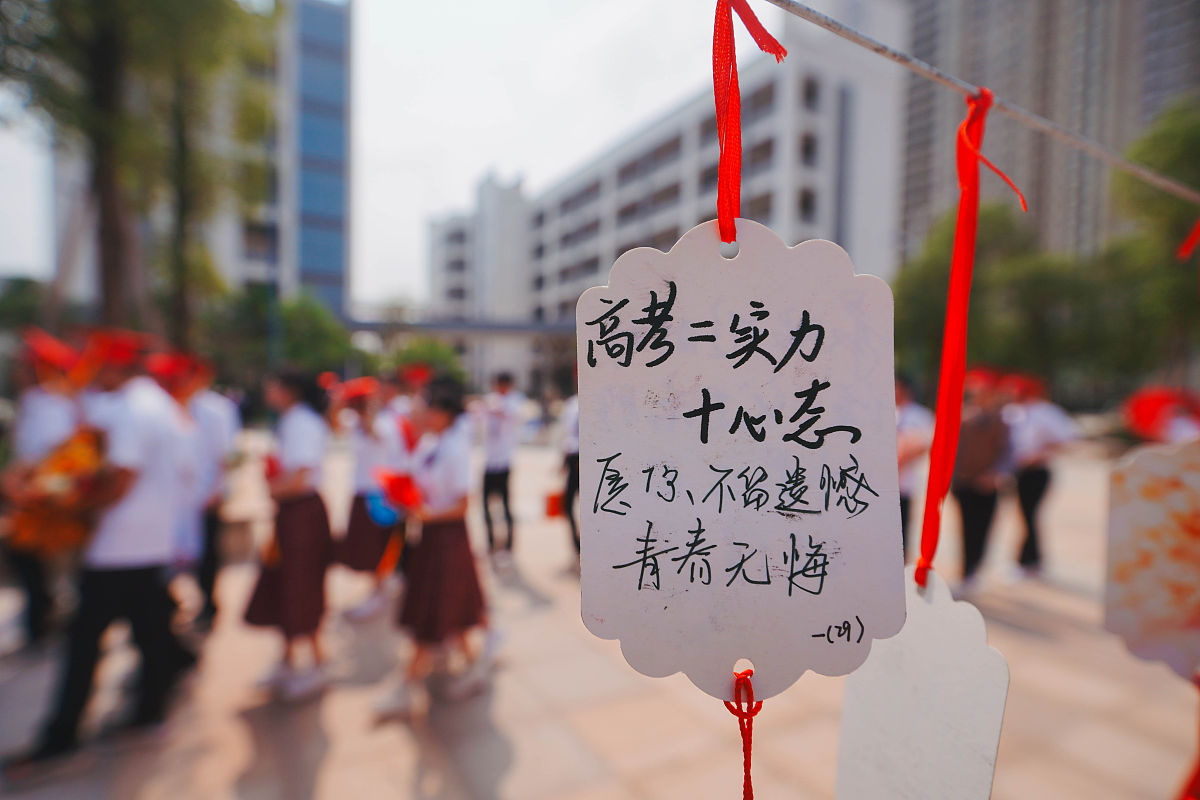 高考=实力
十心态
愿你、不留遗憾
青春无悔
-(29)